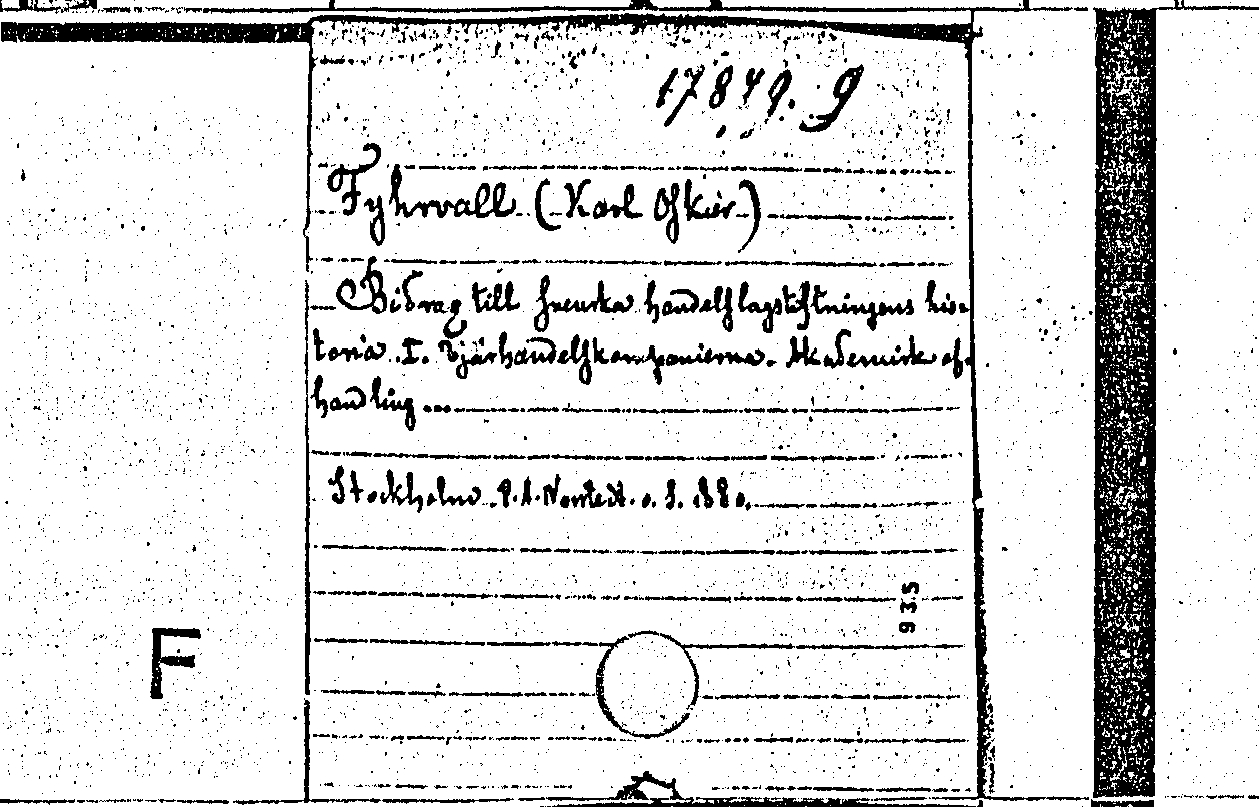 17849. 9
Fyhrvall (Karl Oskar)
Bidrag till svenska handelslagstiftningens his-
toria. I. Tjärhandelskompanierna. Akademisk af-
handling...
Stockholm. P. A. Norstedt. o. S. 1880.
935
F